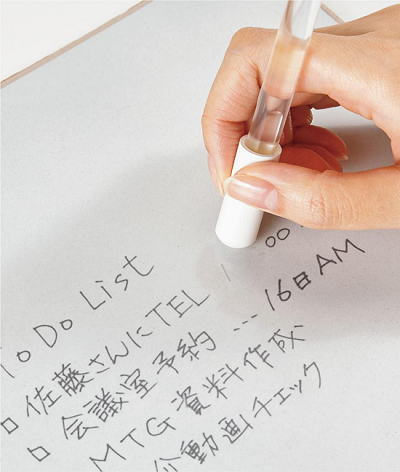 To Do List
□ 佐藤さんにTEL 1 00
□ 会議室予約 … 16日AM
MTG資料作成
介動画チェック